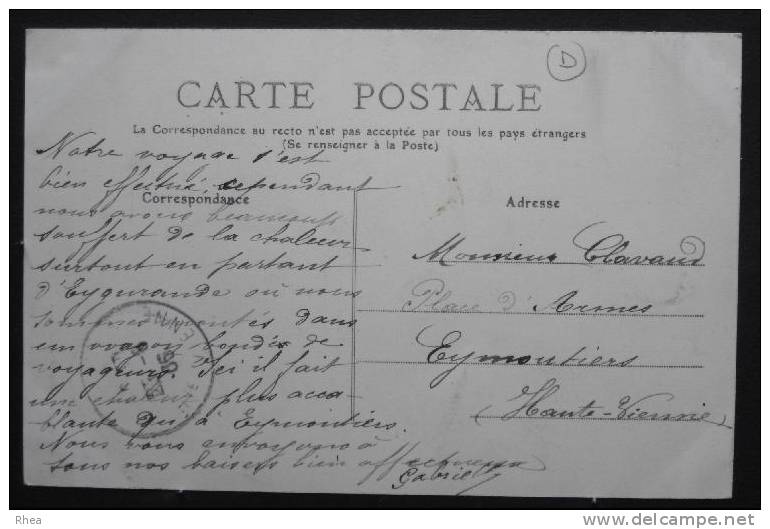 D
CARTE POSTALE
La Correspondance au recto n'est pas acceptée par tous les pays étrangers
(Se renseigner à la Poste)
Correspondance
Notre voyage s'est
bien effectué, cependant
nous avons beaucoup
souffert de la chaleur
surtout en partant
d'Eygurande où nous
sommes montés dans
un wagon bondé de
voyageurs. Ici il fait
une chaleur plus acca-
blante qu'à Eymoutiers.
Nous vous envoyons à
tous nos baisers bien affectueux
Gabriel
Adresse
Monsieur Clavaud
Place d'Armes
Eymoutiers
(Haute-Vienne)
Rhea
delcampe.net